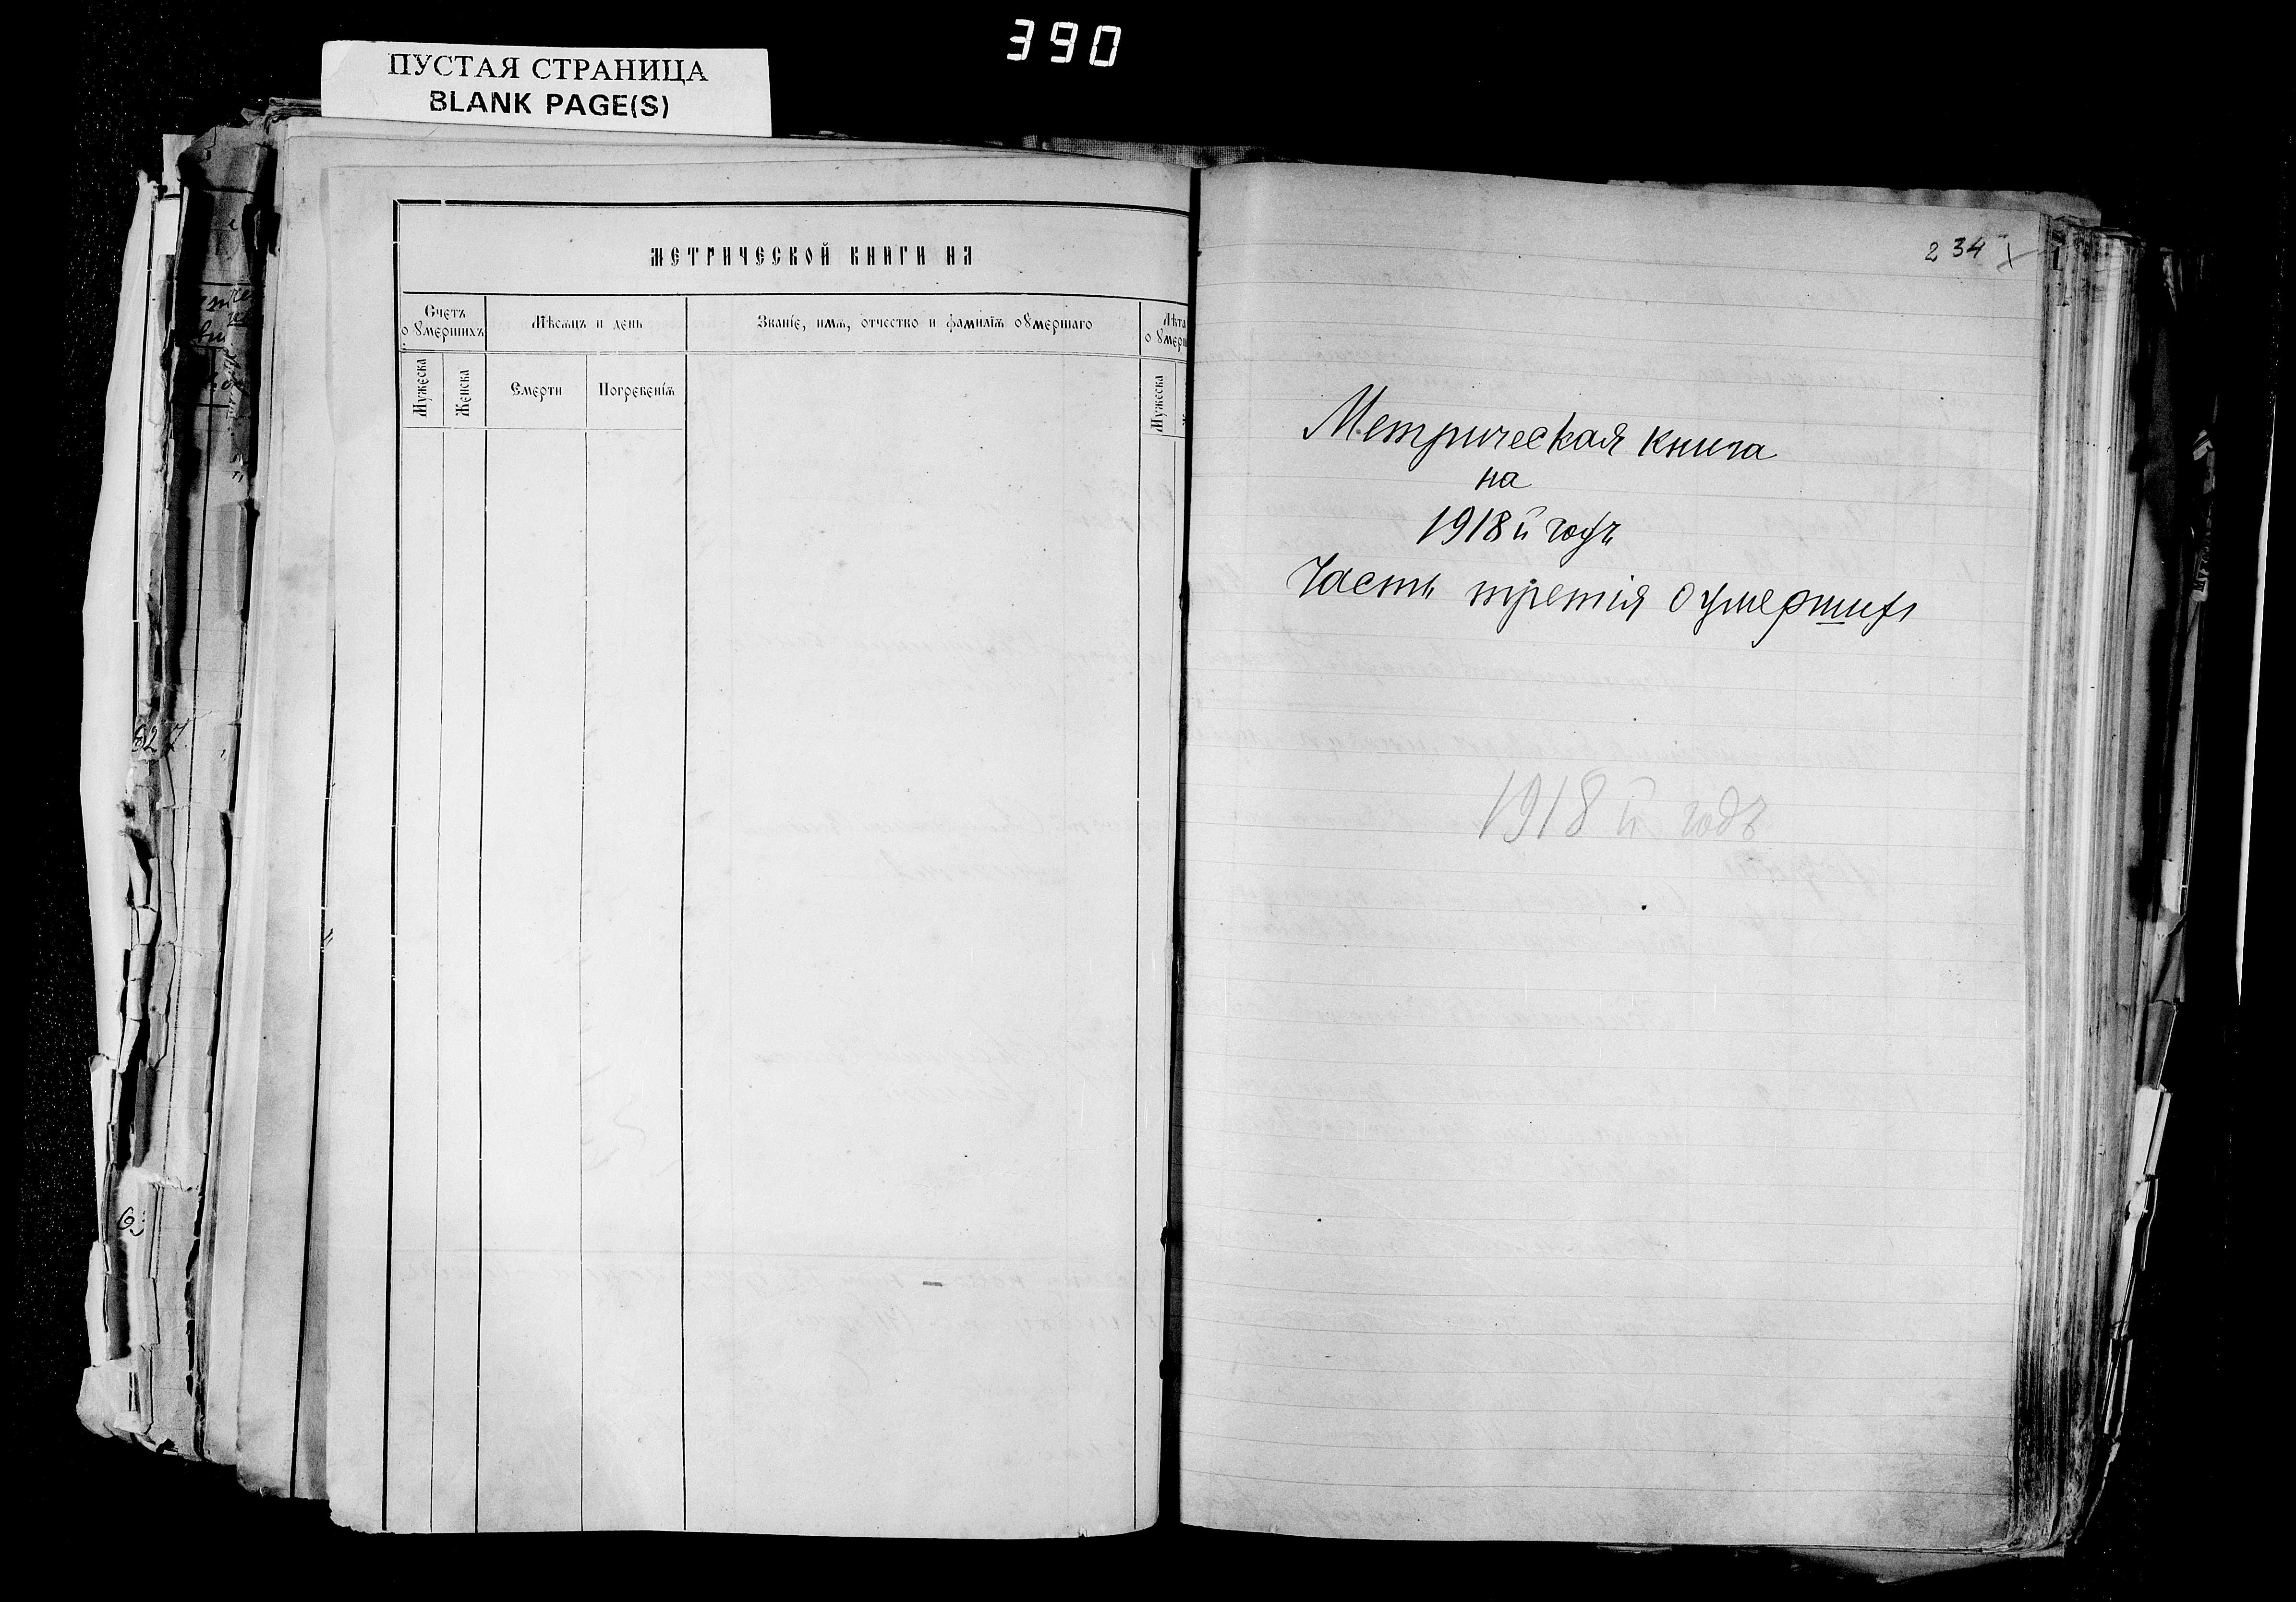 390
ПУСТАЯ СТРАНИЦА
BLANK PAGE(S)
МЕТРИЧЕСКОЙ КНИГИ НА
Счетъ оумершихъ
Мѣсяцъ и день
Званіе, имя, отчество и фамилія оумершаго
Лѣта
оумер
Мужеска
Женска
Смерти
Погребенія
Мужеска
234
Метрическая книга
на
1918й годъ
Часть третія о умерших
1918 й годъ
627